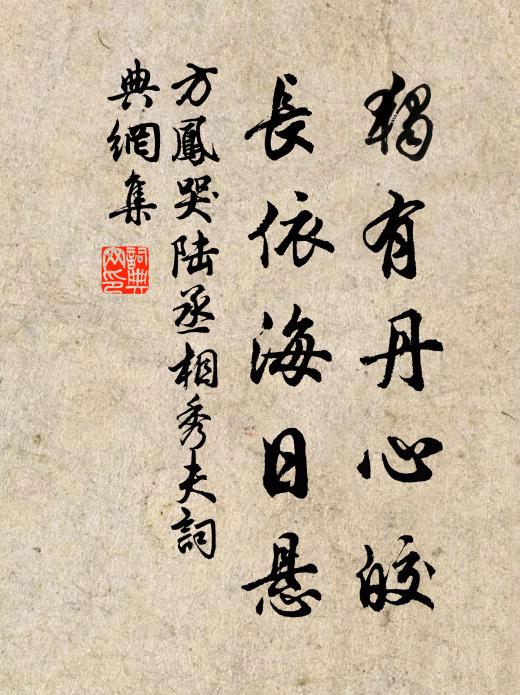 獨有丹心皎
長依海日悬
方鳳哭陆丞相秀夫詞
典網集
詞典
网印